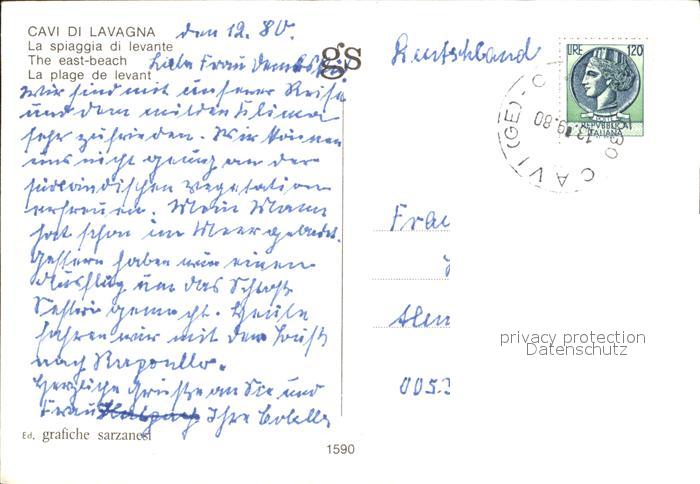 CAVI DI LAVAGNA
La spiaggia di levante
The east-beach
La plage de levant
gs
den 12. 80.
Liebe Frau
wir sind mit unserer Reise
und dem milden Klima
sehr zufrieden. Wir können
uns nicht genug an der
südländischen Vegetation
erfreuen. Mein Mann
hat schon im Meer gebadet.
Gestern haben wir einen
Ausflug um das Schloß
Sestri gemacht. Heute
fahren wir mit dem
nach Rapallo.
Herzliche Grüße an Sie und
Frau Ihre
Ed. grafiche sarzanesi
1590
Deutschland
LIRE 120
REPVBBLICA
ITALIANA
CAVI (GE)
9.80
Frau
0053
privacy protection
Datenschutz